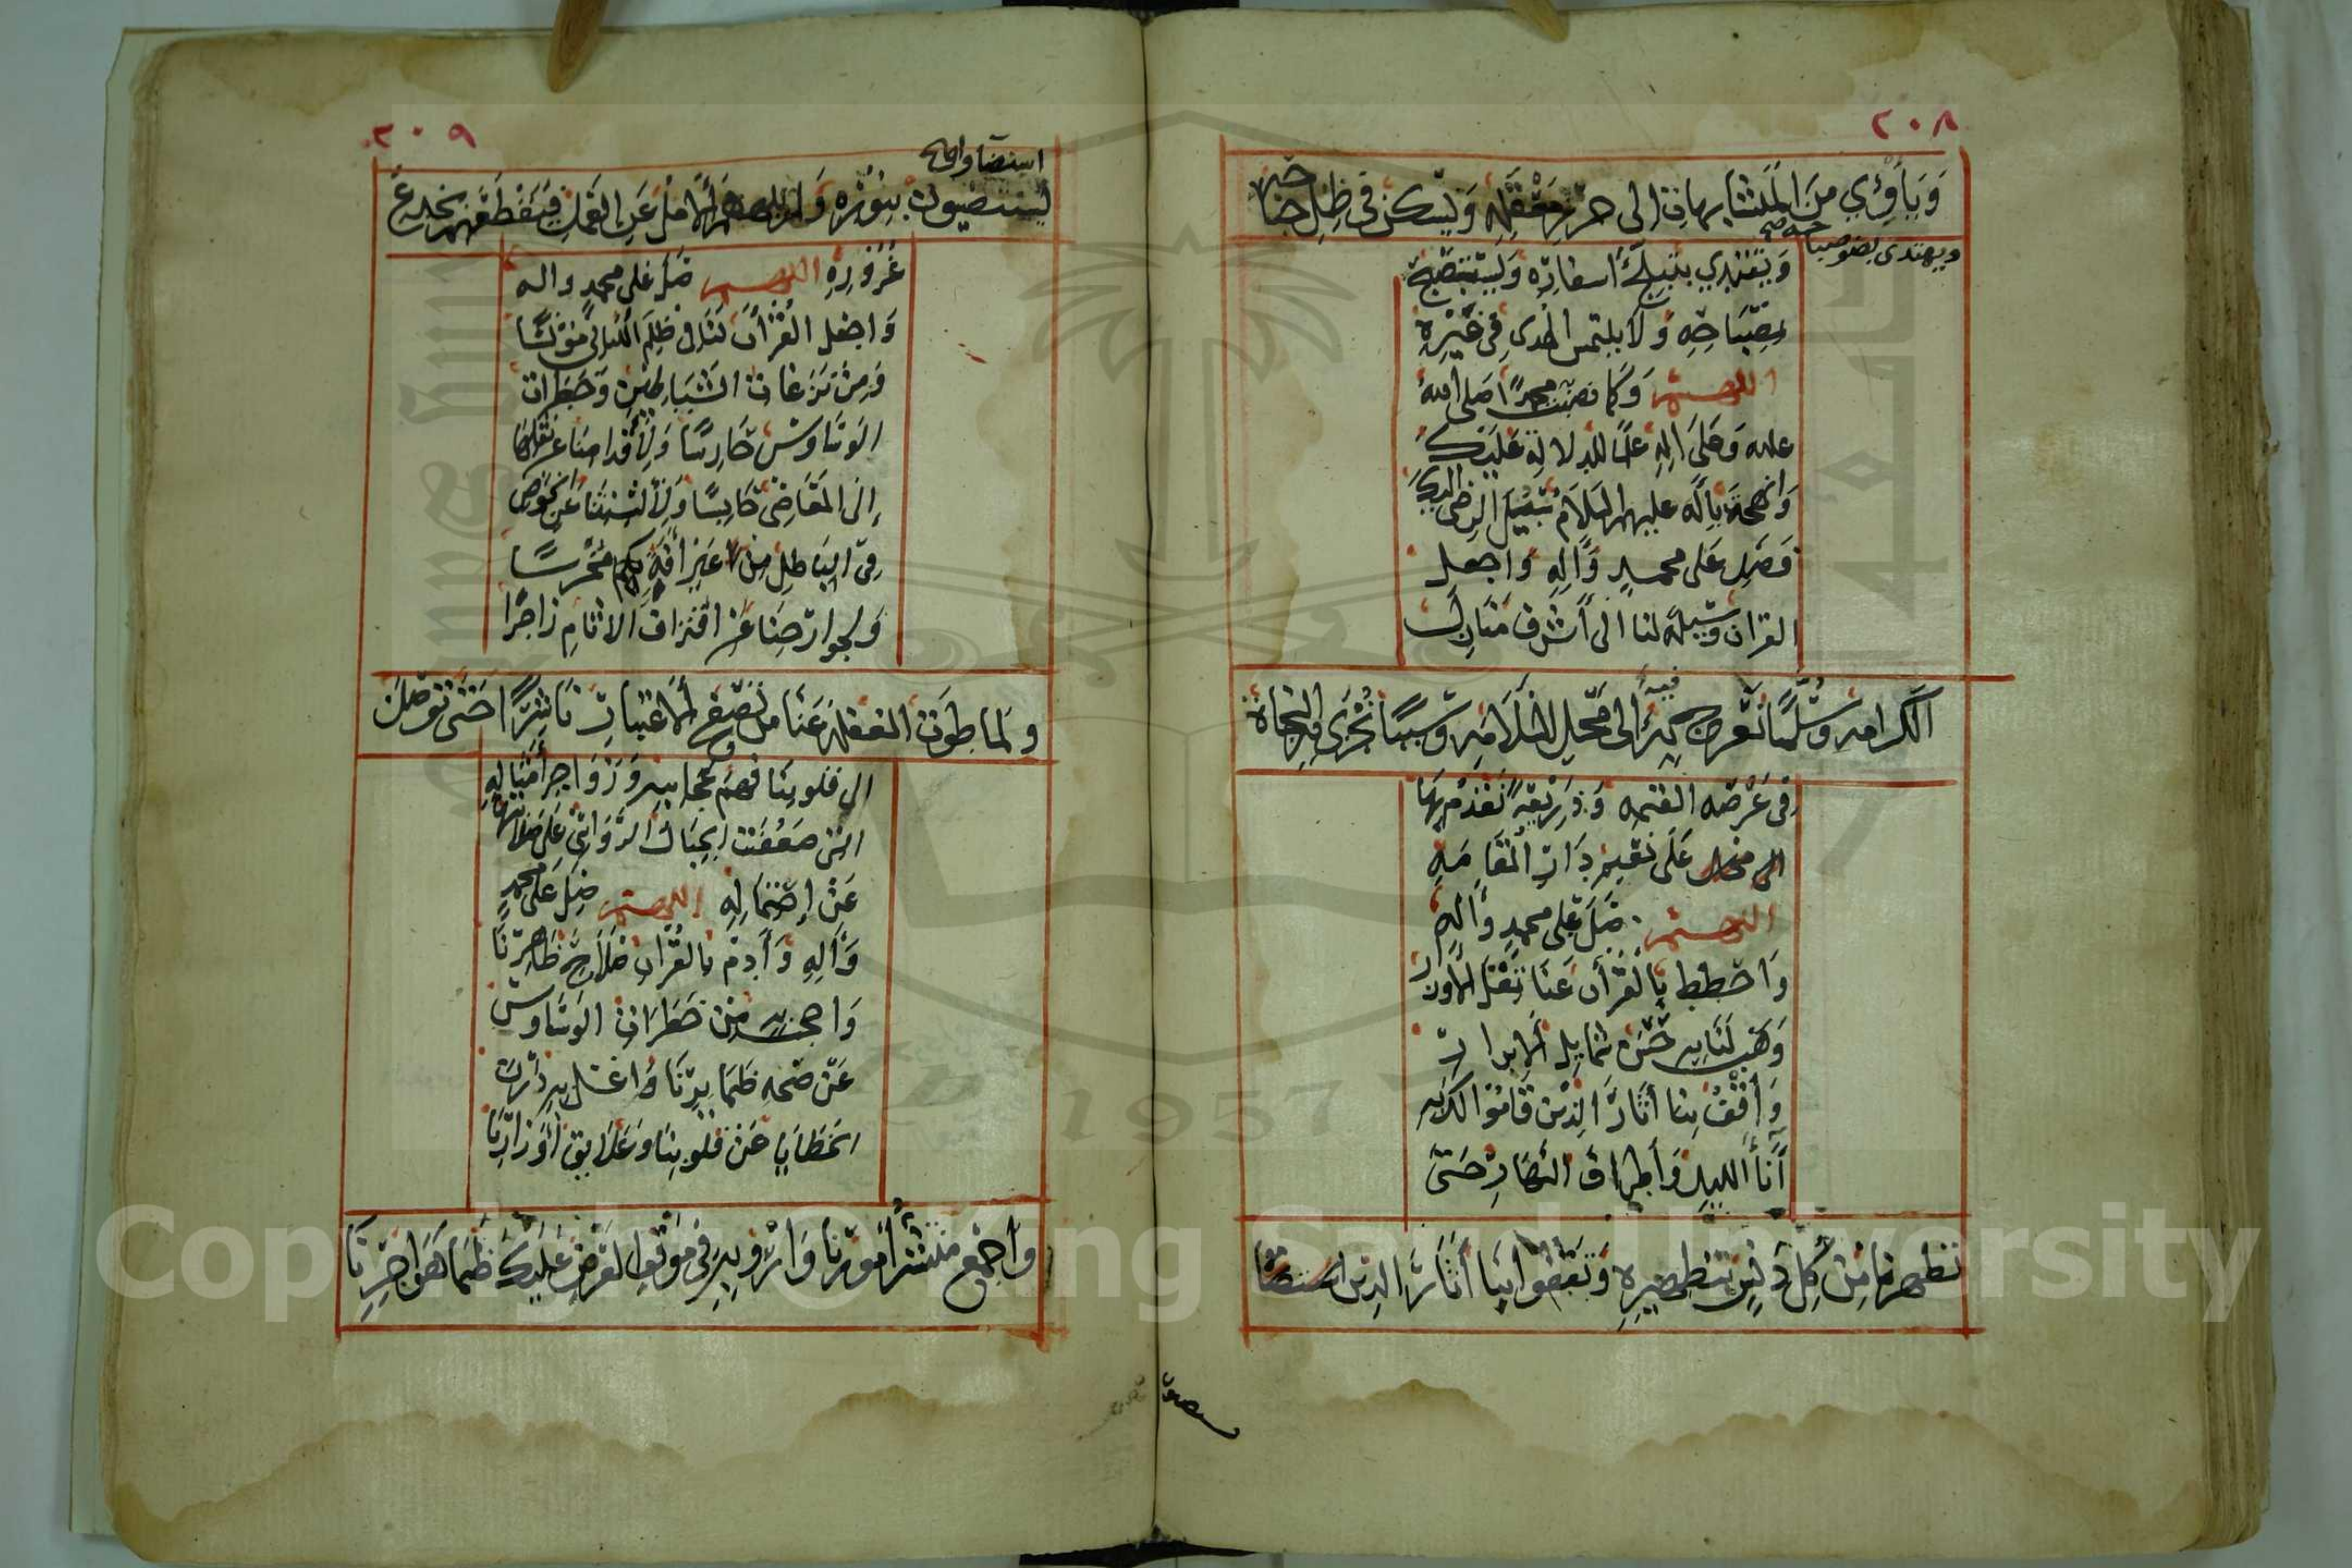 ٢٠٨
وَيَأْوِي مِنَ المُتَشَابِهَاتِ إلى حِرْزِ مَعْقِلِهِ وَيَسْكُنُ فِي ظِلِّ جَنَاحِهِ
ويهتدي بضوء صباحه صح
وَيَقْتَدِي بِتَبَلُّجِ أسفَارِهِ وَيَسْتَصْبِحُ
بِمِصْبَاحِهِ وَلَا يلتمس الهُدى فِي غَيْرِهِ
اللهم وَكَمَا نصبت محمدًا صَلى الله
عليه وَعَلَى آلِهِ علمًا للدلالة عَلَيْكَ
وَانهجت بِآلِه عليهم السَّلَام سُبُلَ الرِضى إليك
فَصَلِّ عَلى محمد وَآلِهِ وَاجعل
القران وَسِيلَة لنا الى أَشْرَف مَنَازِل
الكرامه وَسُلَّمًا نَعْرُج فيه الى مَحَلِّ السَّلَامَةِ وَسَبَبًا نُجْزَى بِهِ النجاة
فِي عَرْصَه القيمه وَذَرِيعَةً نَقْدُم بِهَا
عَلَى نَعِيمِ دَارِ الْمُقَامَةِ
اللهم صَلِّ عَلى محمد وَآله
وَاحْطُط بِالْقُرْآنِ عَنَّا ثِقْلَ الأوزار
وَهَبْ لَنَا بِهِ حُسْنَ شمايل الابرار
وَأقْفُ بِنا أثَارَ الذِيْنَ قَامُوا لك بِه
آنَاءَ الليل وَأطراف النَّهَارِ حَتى
تطهرنا مِنْ كل دَنَسٍ بتطهيرِهِ وَتَقْفُوَ بِنَا أَثَارَ الذِين استضاؤا
٢٠٩
استضاوا صح
يستضيون بِنُوْرِه وَلم يلههم الأَمَلُ عَنِ العَمَلِ فَيَقْطَعَهُم بخدع
غُرُوْرِه اللهم صَلِّ عَلى محمد واله
وَاجْعَل الْقُرْآنَ لَنَا في ظُلَمِ الليالي مُوْنِسًا
وَمِنْ نَزَغَاتِ الشَّيَاطِيْنِ وَخَطَرَاتِ
الوَسَاوِسْ حَارِسًا وَلأَقْدامِنَا عَن نَقْلِهَا
إلى المَعَاصِي حَابِسًا وَلِأَلْسِنَتِنَا عَنِ الخَوْضِ
فِي البَاطِلِ مِن غَيْرِ أفَةٍ مُخْرِسًا
وَلجوارحِنَا عَن اقْتِرَافِ الاثَامِ زَاجِرًا
وَلما طوَت الغفلة عَنَّا من تَصَفُّحِ الاعْتِبَارِ نَاشِرًا حَتَّى تُوْصِلَ
الى قلوبنَا فهم عجايبه وَزَوَاجِر أَمْثَالِهِ
التي ضَعُفَت الجِبَال الرَّوَاسِي عَلَى صَلَابتها
عَنْ احْتِمَالِهِ اللهم صَلِّ عَلَى محمد
وَآلِهِ وَأَدِمْ بالقُرْانِ صَلَاحَ ظَاهِرِنَا
وَاحجب به مِنْ خَطَرَاتِ الوَسَاوِسِ
عَنْ صحه ضَمَايِرِنَا وَاغْسل بِهِ دَرَنَ
الخَطَايَا عَنْ قلوبنَا وَعَلَايِقَ أَوْزَارِنَا
وَاَجْمَعْ مُنْتَشَرَ أُمُورِنا وَارْوِ بِهِ في مَوْقِفِ العَرْضِ عَلَيْكَ ظَمَأ هَوَاجِرِنَا
يستضون
Copyright © King Saud University
1957